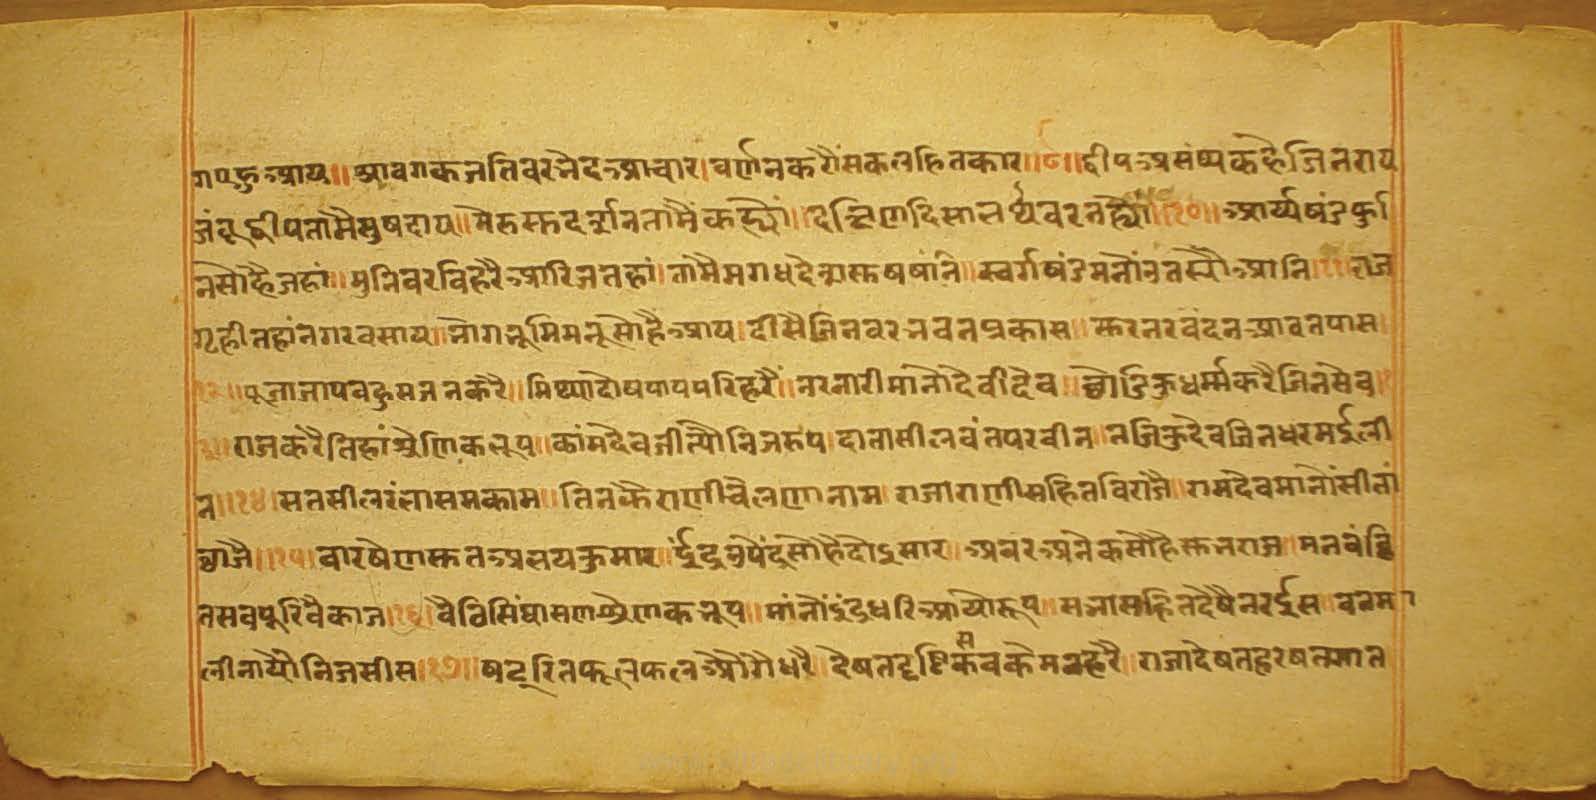 गपहुआय॥ श्रावगकजतिवरनैदआचार। वर्णनकरौंसकलहितकार॥९॥ द्वीपअसंष्यकहेजिनराय
जंबूद्वीपनामैसुषदाय॥ मेरुसुदर्शनतामैंकह्यौ॥ दक्षिणदिसाभर्थवरतह्यौ॥१०॥ आर्य्यषंड
नसोहैजहां॥ मुनिवरविहरैआरिजतहां। तामैमगधदेशसुषषांनि॥ स्वर्गषंडमनौंउतस्यौआनि॥११॥ राज
गृहीतहांनगरवसाय॥ भोगभूमिमनूसोहैआय। दीसैजिनवरभवनप्रकास॥ सुरनरवंदनआवतपास।
१२॥ पूजाजापबहुसजनकरै॥ मिथ्यादोषपापपरिहरैं॥ नरनारीमानोदेवीदेव॥ छोडिकुधर्म्मकरैजिनसेव॥
राजकरैतिहांश्रेणिकभूप॥ कांमदेवजीत्यौनिजरूप। दातासीलवंतपरवीन॥ भजिकुदेवजिनधरमईली
न॥१४॥ सतसीलरंभासमकाम॥ तिनकैराणीचेलणानाम। राजाराणीसहितविराजै॥ रामदेवमानौंसीतां
छाजै॥१५॥ वारषेणसुतअभयकुमार॥ सोहैदोउसार॥ अवरअनेकसोहैसुतराज॥ मनवंछि
तसवपुरिवैकाज॥१६॥ वैठिसिंघासणश्रेणकभूप॥ मांनौंइंद्रधरिआयोरूप॥ सभासहितदेषैनरईस॥ वनमा
लीनायौनिजसीस॥१७॥ षटरितफूलफलआगैधरै॥ देषतदृष्टिसवकेमनहरै॥ राजादेषतहरषत